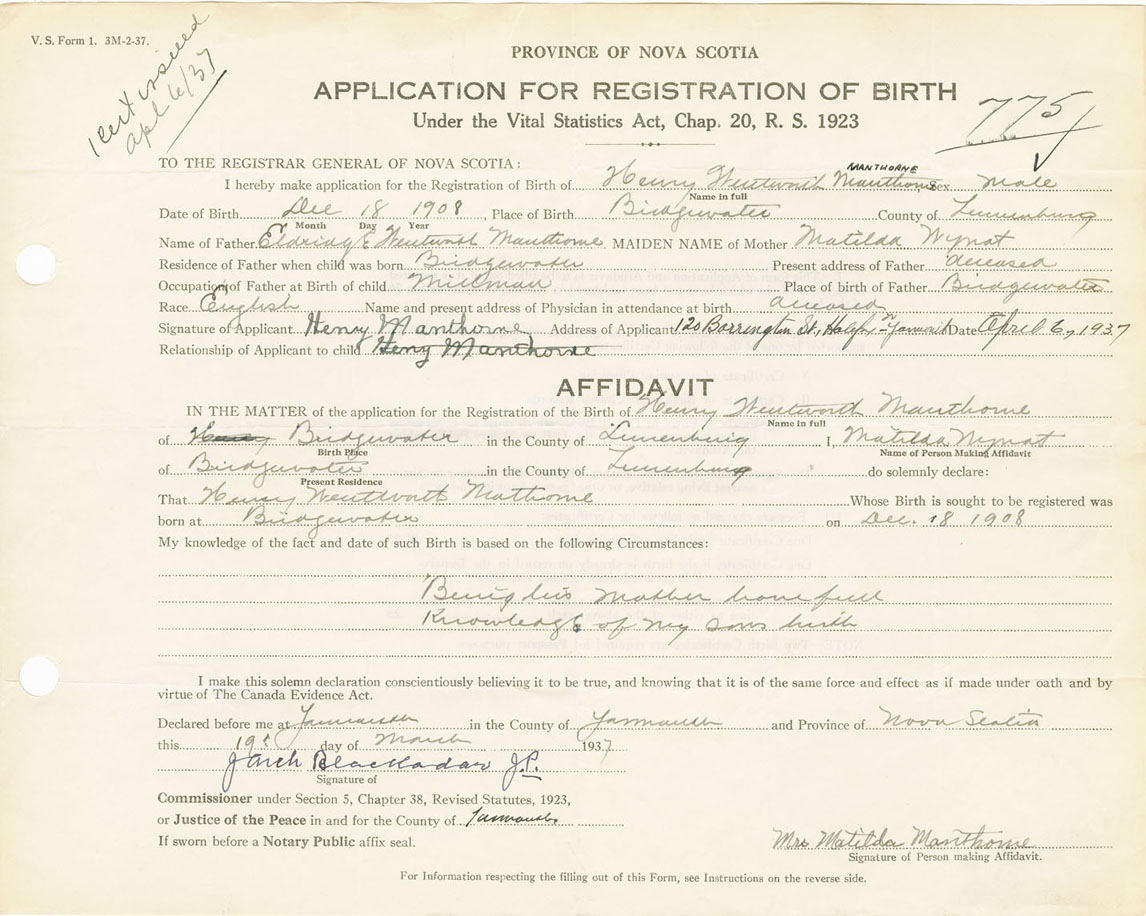 V. S. Form 1. 3M-2-37.
1 cert issued
Apl 6/37
PROVINCE OF NOVA SCOTIA
APPLICATION FOR REGISTRATION OF BIRTH
Under the Vital Statistics Act, Chap. 20, R. S. 1923
775
TO THE REGISTRAR GENERAL OF NOVA SCOTIA:
MANTHORNE
I hereby make application for the Registration of Birth of Henry Wentworth Manthorne Sex Male
Name in full
Date of Birth Dec 18 1908, Place of Birth Bridgewater County of Lunenburg
Month Day Year
Name of Father Eldridge Wentworth Manthorne MAIDEN NAME of Mother Matilda Wynat
Residence of Father when child was born Bridgewater Present address of Father deceased
Occupation of Father at Birth of child Millman Place of birth of Father Bridgewater
Race English Name and present address of Physician in attendance at birth deceased
Signature of Applicant Henry Manthorne Address of Applicant 120 Barrington St, Date April 6, 1937
Relationship of Applicant to child Heny Manthorne
AFFIDAVIT
IN THE MATTER of the application for the Registration of the Birth of Henry Wentworth Manthorne
Name in full
of Henry Bridgewater in the County of Lunenburg I, Matilda Wynat
Birth Place Name of Person Making Affidavit
of Bridgewater in the County of Lunenburg do solemnly declare:
Present Residence
That Henry Wentworth Mathorne Whose Birth is sought to be registered was
born at Bridgewater on Dec. 18 1908
My knowledge of the fact and date of such Birth is based on the following Circumstances:
Being his mother have full
Knowledge of my sons birth
I make this solemn declaration conscientiously believing it to be true, and knowing that it is of the same force and effect as if made under oath and by
virtue of The Canada Evidence Act.
Declared before me at Yarmouth in the County of Yarmouth and Province of Nova Scotia
this 19th day of March 1937
Arch Blackadar J.P.
Signature of
Commissioner under Section 5, Chapter 38, Revised Statutes, 1923,
or Justice of the Peace in and for the County of Yarmouth
If sworn before a Notary Public affix seal.
Mrs Matilda Manthorne
Signature of Person making Affidavit.
For Information respecting the filling out of this Form, see Instructions on the reverse side.